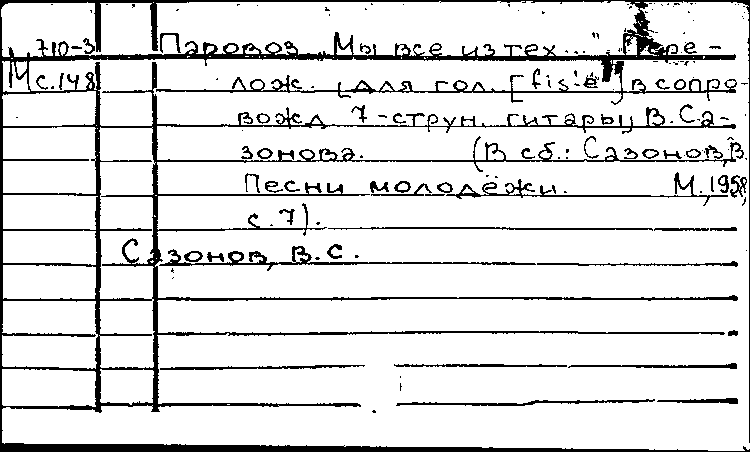 М 710-3 Паровоз „Мы все из тех..." Пере-
с.148 лож. [для гол. [fis¹-e²] в сопро-
вожд 7-струн. гитары] В.Са-
зонова. (В сб.: Сазонов, В.
Песни молодёжи. М., 1958,
с. 7).
Сазонов, В.С.